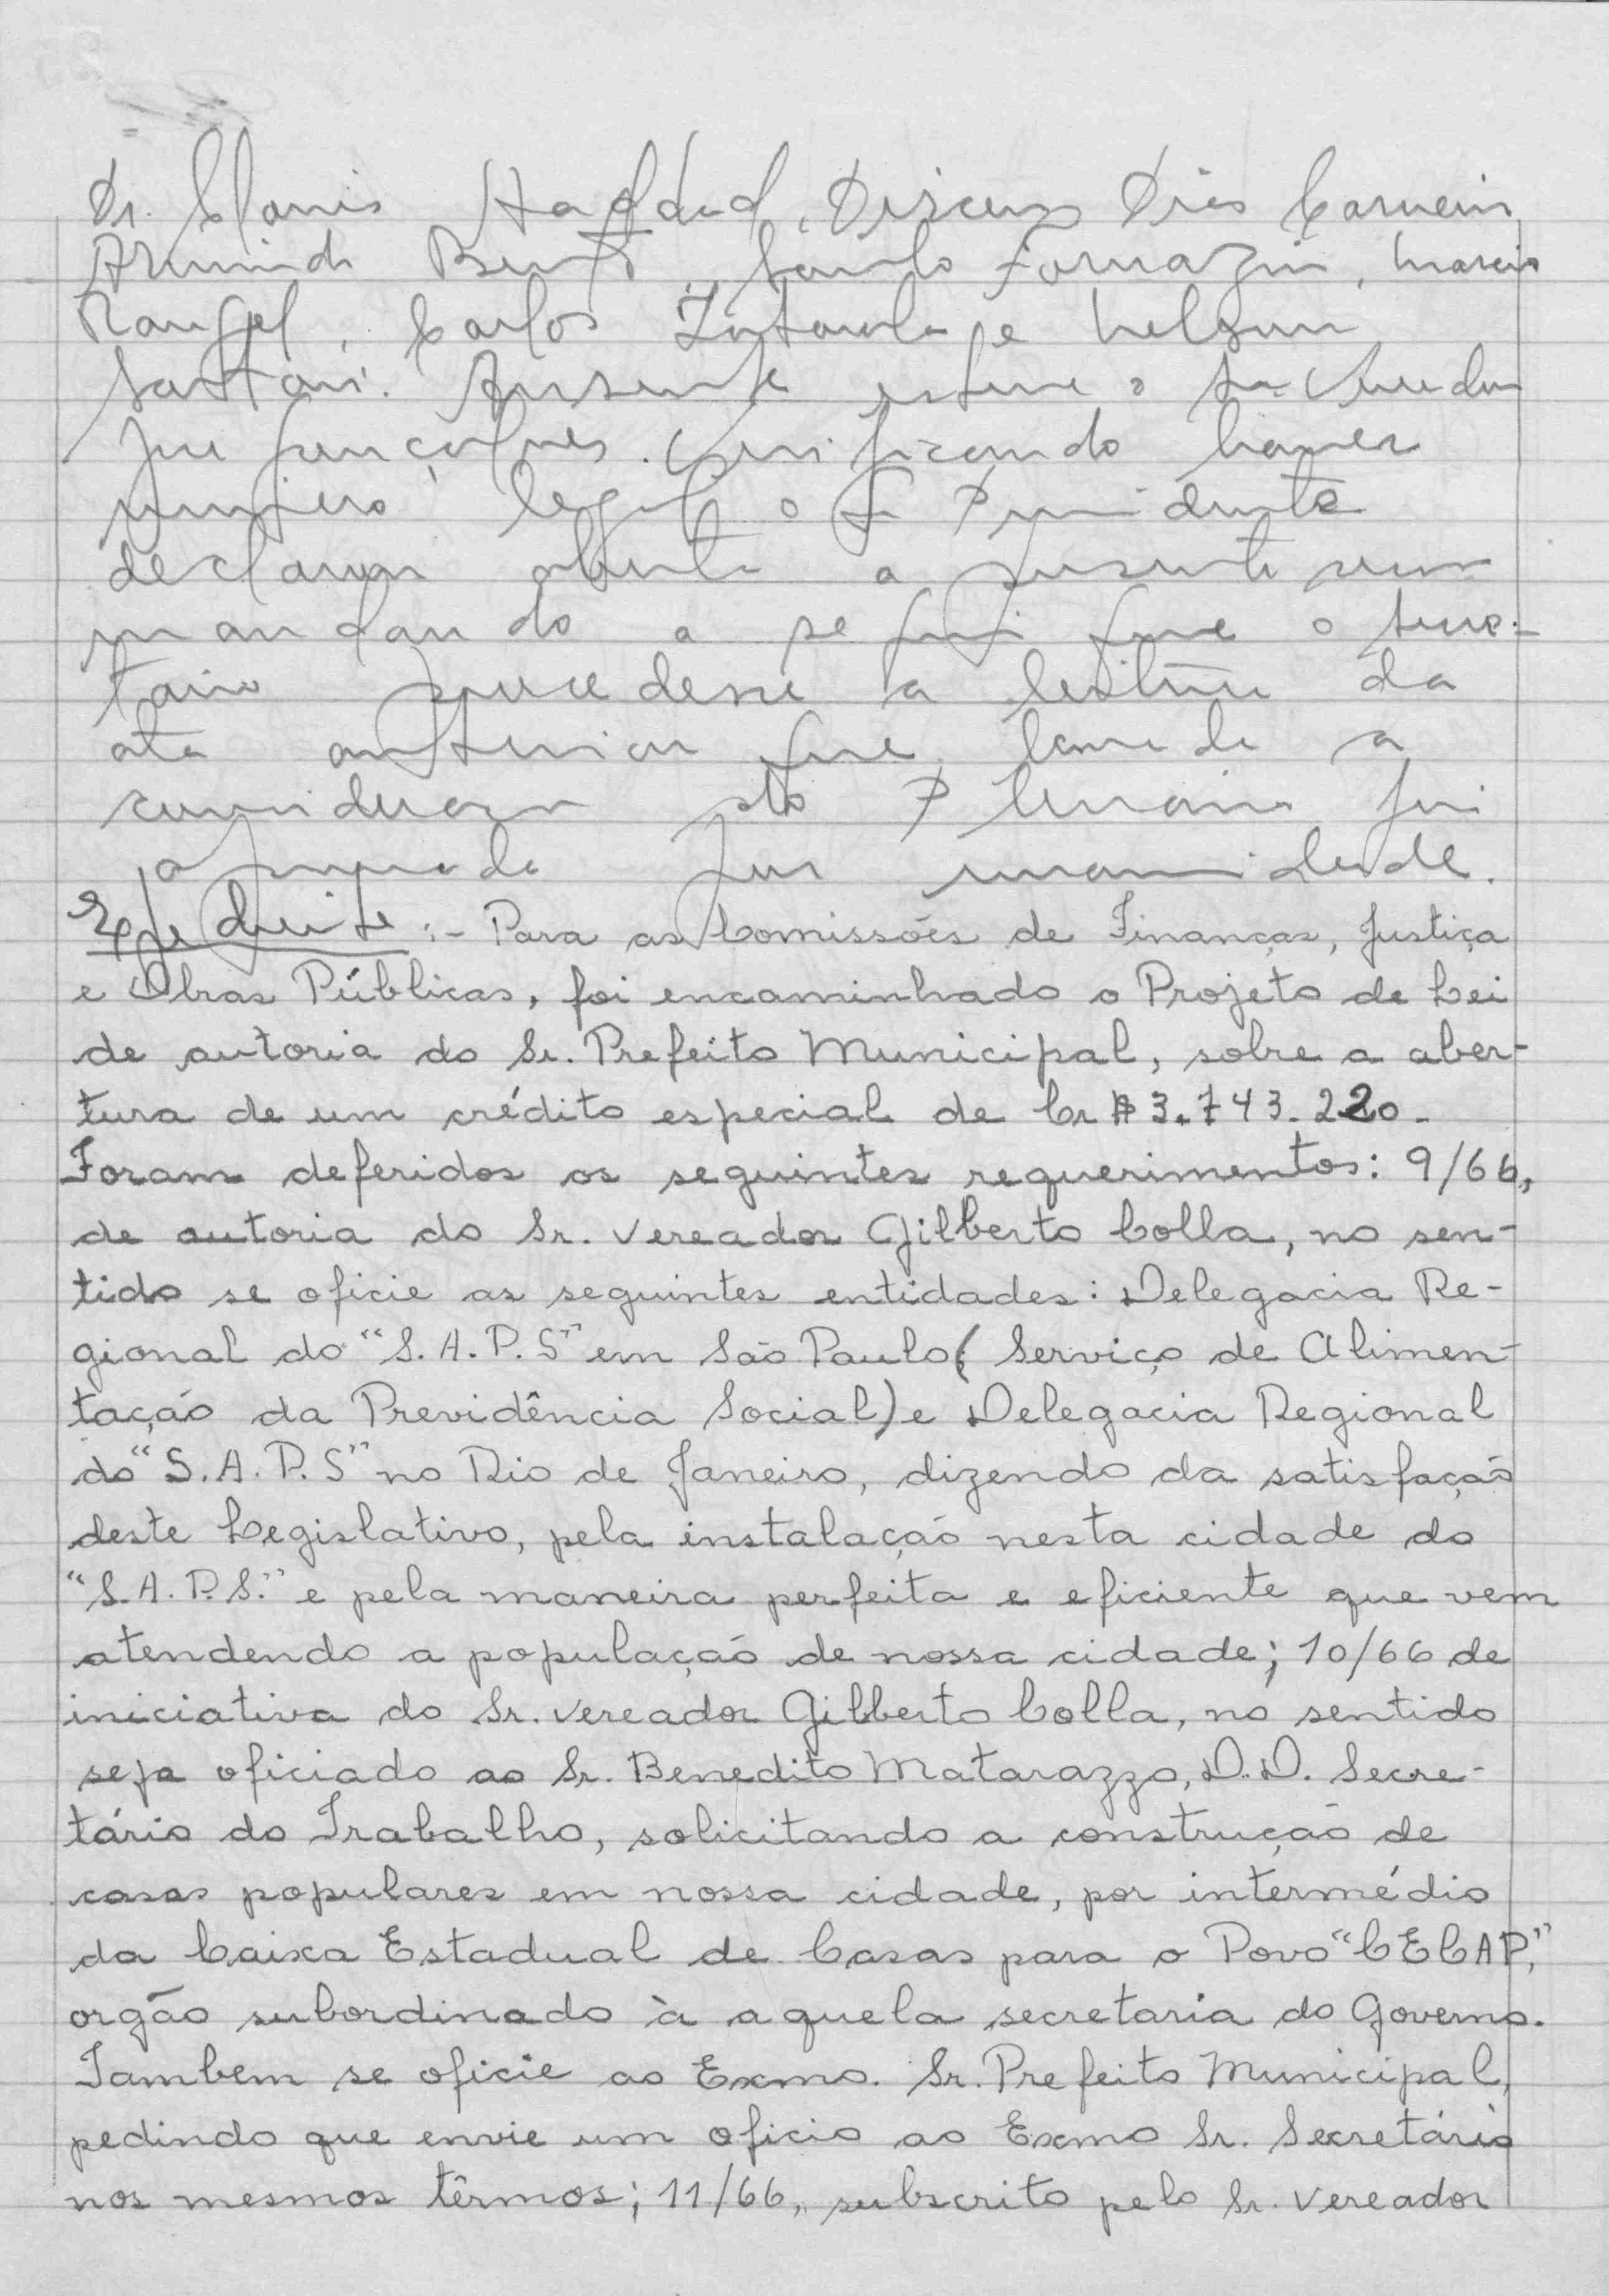 Dr. Clovis Haddad, Dirceu Dias Carneiro
Armindo Bento, Paulo Fornazin, Marcio
Rangel, Carlos e Nelson
Sartori. Ausente esteve o Sr. Vereador
Gonçalves. Verificando haver
número legal o Sr Presidente
declarou aberta a presente sessão
mandando a seguir que o Secre-
tário procedesse a leitura da
ata anterior que levada a
consideração do Plenário foi
aprovada por unanimidade.
Expediente :- Para as Comissões de Finanças, Justiça
e Obras Públicas, foi encaminhado o Projeto de Lei
de autoria do Sr. Prefeito Municipal, sobre a aber-
tura de um crédito especial de Cr$ 3.743.220-
Foram deferidos os seguintes requerimentos: 9/66,
de autoria do Sr. Vereador Gilberto Colla, no sen-
tido se oficie as seguintes entidades: Delegacia Re-
gional do "S.A.P.S" em São Paulo (Serviço de Alimen-
tação da Previdência Social) e Delegacia Regional
do "S.A.P.S" no Rio de Janeiro, dizendo da satisfação
deste Legislativo, pela instalação nesta cidade do
"S.A.P.S." e pela maneira perfeita e eficiente que vem
atendendo a população de nossa cidade; 10/66 de
iniciativa do Sr. Vereador Gilberto Colla, no sentido
seja oficiado ao Sr. Benedito Matarazzo, D.D. Secre-
tário do Trabalho, solicitando a construção de
casas populares em nossa cidade, por intermédio
da Caixa Estadual de Casas para o Povo "CECAP,"
orgão subordinado à aquela secretaria do Governo.
Tambem se oficie ao Exmo. Sr. Prefeito Municipal,
pedindo que envie um oficio ao Exmo Sr. Secretário
nos mesmos têrmos; 11/66, subscrito pelo Sr. Vereador